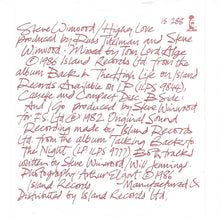 IS 288
Steve Winwood / Higher Love
Produced by Russ Titelman and Steve
Winwood. Mixed by Tom Lord Alge
© 1986 Island Records Ltd from the
album Back in The High Life on Island
Records Available on LP (ILPS 9844),
Cassette and Compact Disc B Side.
And I Go produced by Steve Winwood
for F.S. Ltd ℗ 1982. Original Sound
Recording made by Island Records
Ltd from the album Talking Back to
The Night (LP ILPS 9777) Both tracks
written by Steve Winwood, Will Jennings.
Photography Arthur Elgort © 1986
Island Records Manufactured &
Distributed by Island Records Ltd.